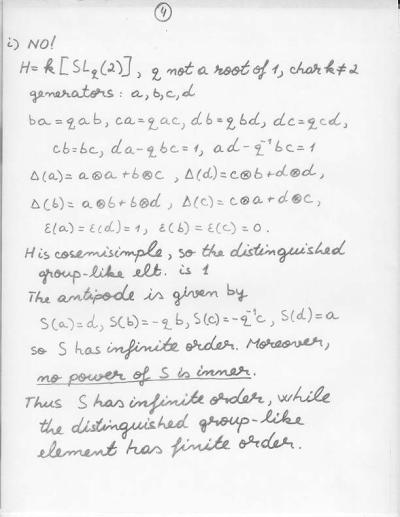 4
i) NO!
H = k[SL_q(2)], q not a root of 1, char k ≠ 2
generators: a, b, c, d
ba = qab, ca = qac, db = qbd, dc = qcd,
cb = bc, da - qbc = 1, ad - q⁻¹bc = 1
Δ(a) = a⊗a + b⊗c, Δ(d) = c⊗b + d⊗d,
Δ(b) = a⊗b + b⊗d, Δ(c) = c⊗a + d⊗c,
ε(a) = ε(d) = 1, ε(b) = ε(c) = 0.
H is cosemisimple, so the distinguished
group-like elt. is 1
The antipode is given by
S(a) = d, S(b) = -qb, S(c) = -q⁻¹c, S(d) = a
so S has infinite order. Moreover,
no power of S is inner.
Thus S has infinite order, while
the distinguished group-like
element has finite order.